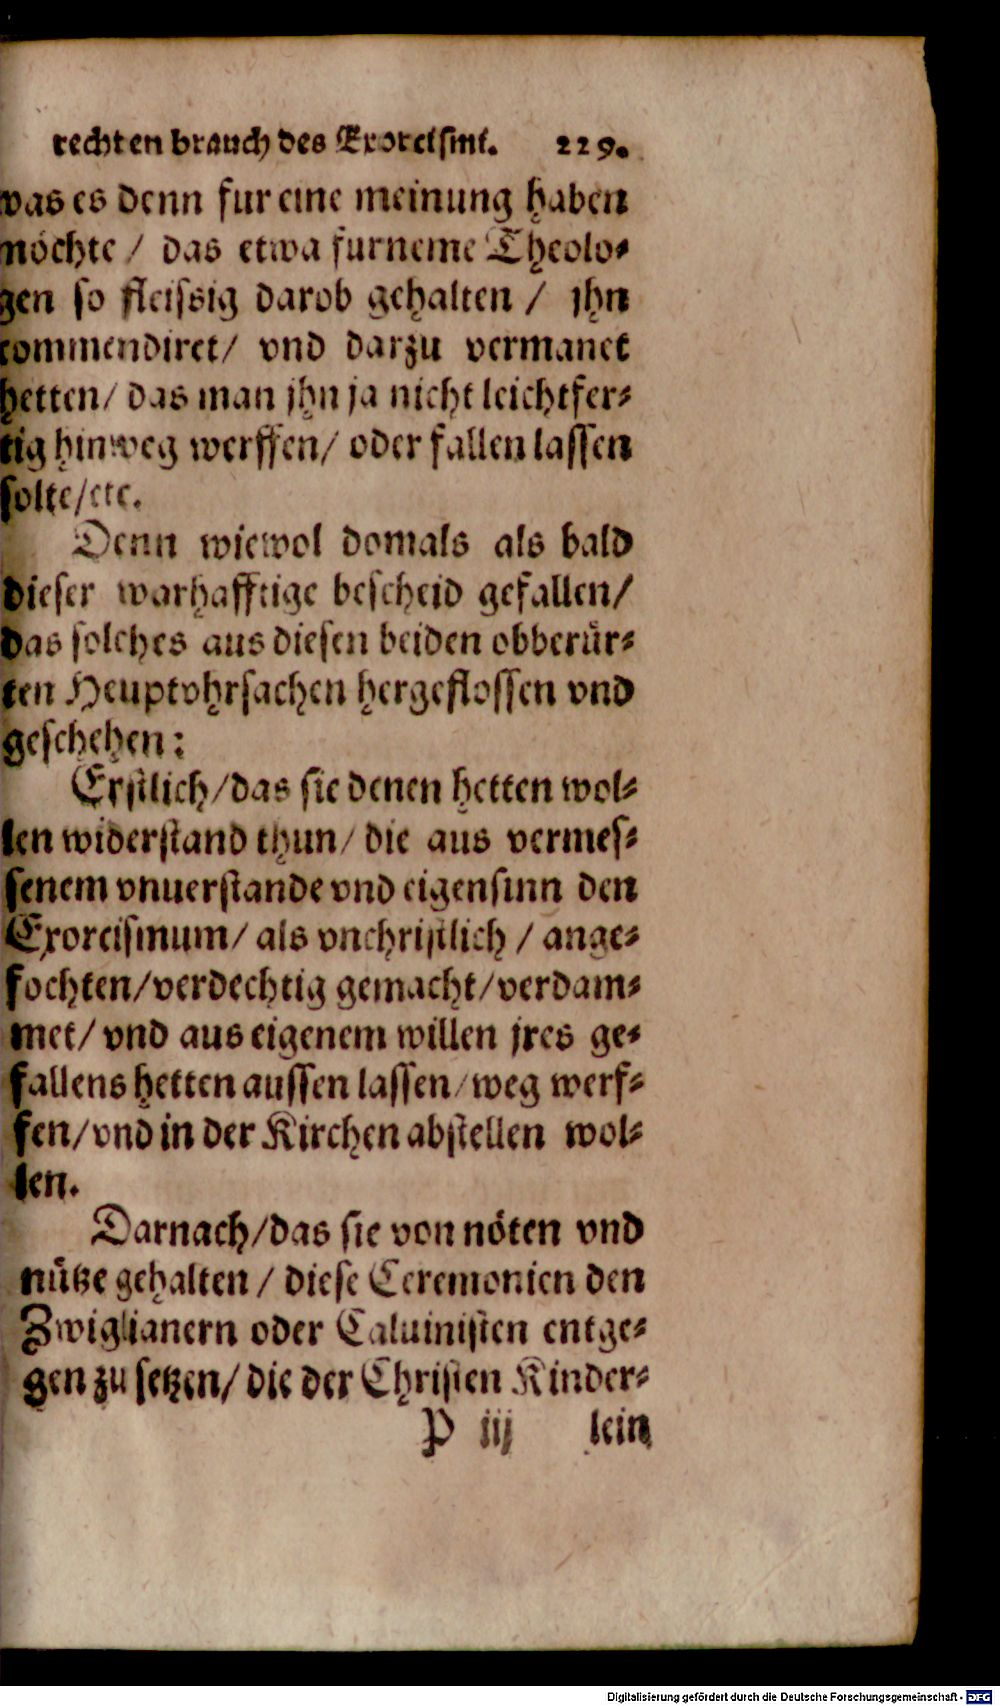 rechten brauch des Exorcismi. 229.
was es denn fur eine meinung haben
möchte / das etwa furneme Theolo-
gen so fleissig darob gehalten / jhn
commendiret/ vnd darzu vermanet
hetten/ das man jhn ja nicht leichtfer-
tig hinweg werffen/ oder fallen lassen
solte/etc.
Denn wiewol domals als bald
dieser warhafftige bescheid gefallen/
das solches aus diesen beiden obberür-
ten Heuptvhrsachen hergeflossen vnd
geschehen:
Erstlich/das sie denen hetten wol-
len widerstand thun/ die aus vermes-
senem vnuerstande vnd eigensinn den
Exorcismum/ als vnchristlich / ange-
fochten/verdechtig gemacht/verdam-
met/ vnd aus eigenem willen jres ge-
fallens hetten aussen lassen/weg werf-
fen/vnd in der Kirchen abstellen wol-
len.
Darnach/das sie von nöten vnd
nütze gehalten / diese Ceremonien den
Zwiglianern oder Caluinisten entge-
gen zu setzen/ die der Christen Kinder-
P iij lein
Digitalisierung gefördert durch die Deutsche Forschungsgemeinschaft - DFG